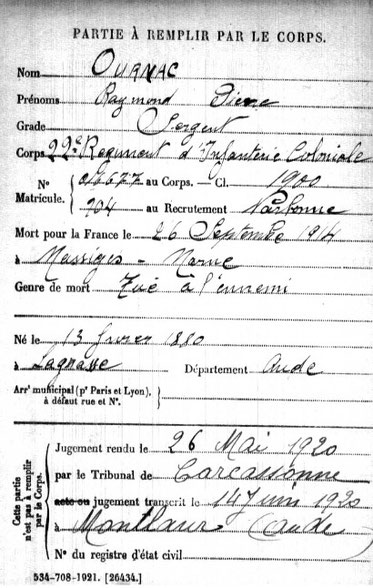 PARTIE À REMPLIR PAR LE CORPS.
Nom OURNAC
Prénoms Raymond Pierre
Grade Sergent
Corps 22e Regiment d'Infanterie Coloniale
N° Matricule. au Corps. — Cl. 1900
904 au Recrutement Narbonne
Mort pour la France le 26 Septembre 1914
à Massiges - Marne
Genre de mort Tué à l'ennemi
Né le 13 1880
à Lagrasse Département Aude
Arrt municipal (pr Paris et Lyon), à défaut rue et N°.
Cette partie n'est pas à remplir par le Corps.
Jugement rendu le 26 Mai 1920
par le Tribunal de Carcassonne
acte ou jugement transcrit le 14 Juin 1920
à Montlaur (Aude)
N° du registre d'état civil
534-708-1921. [26434.]